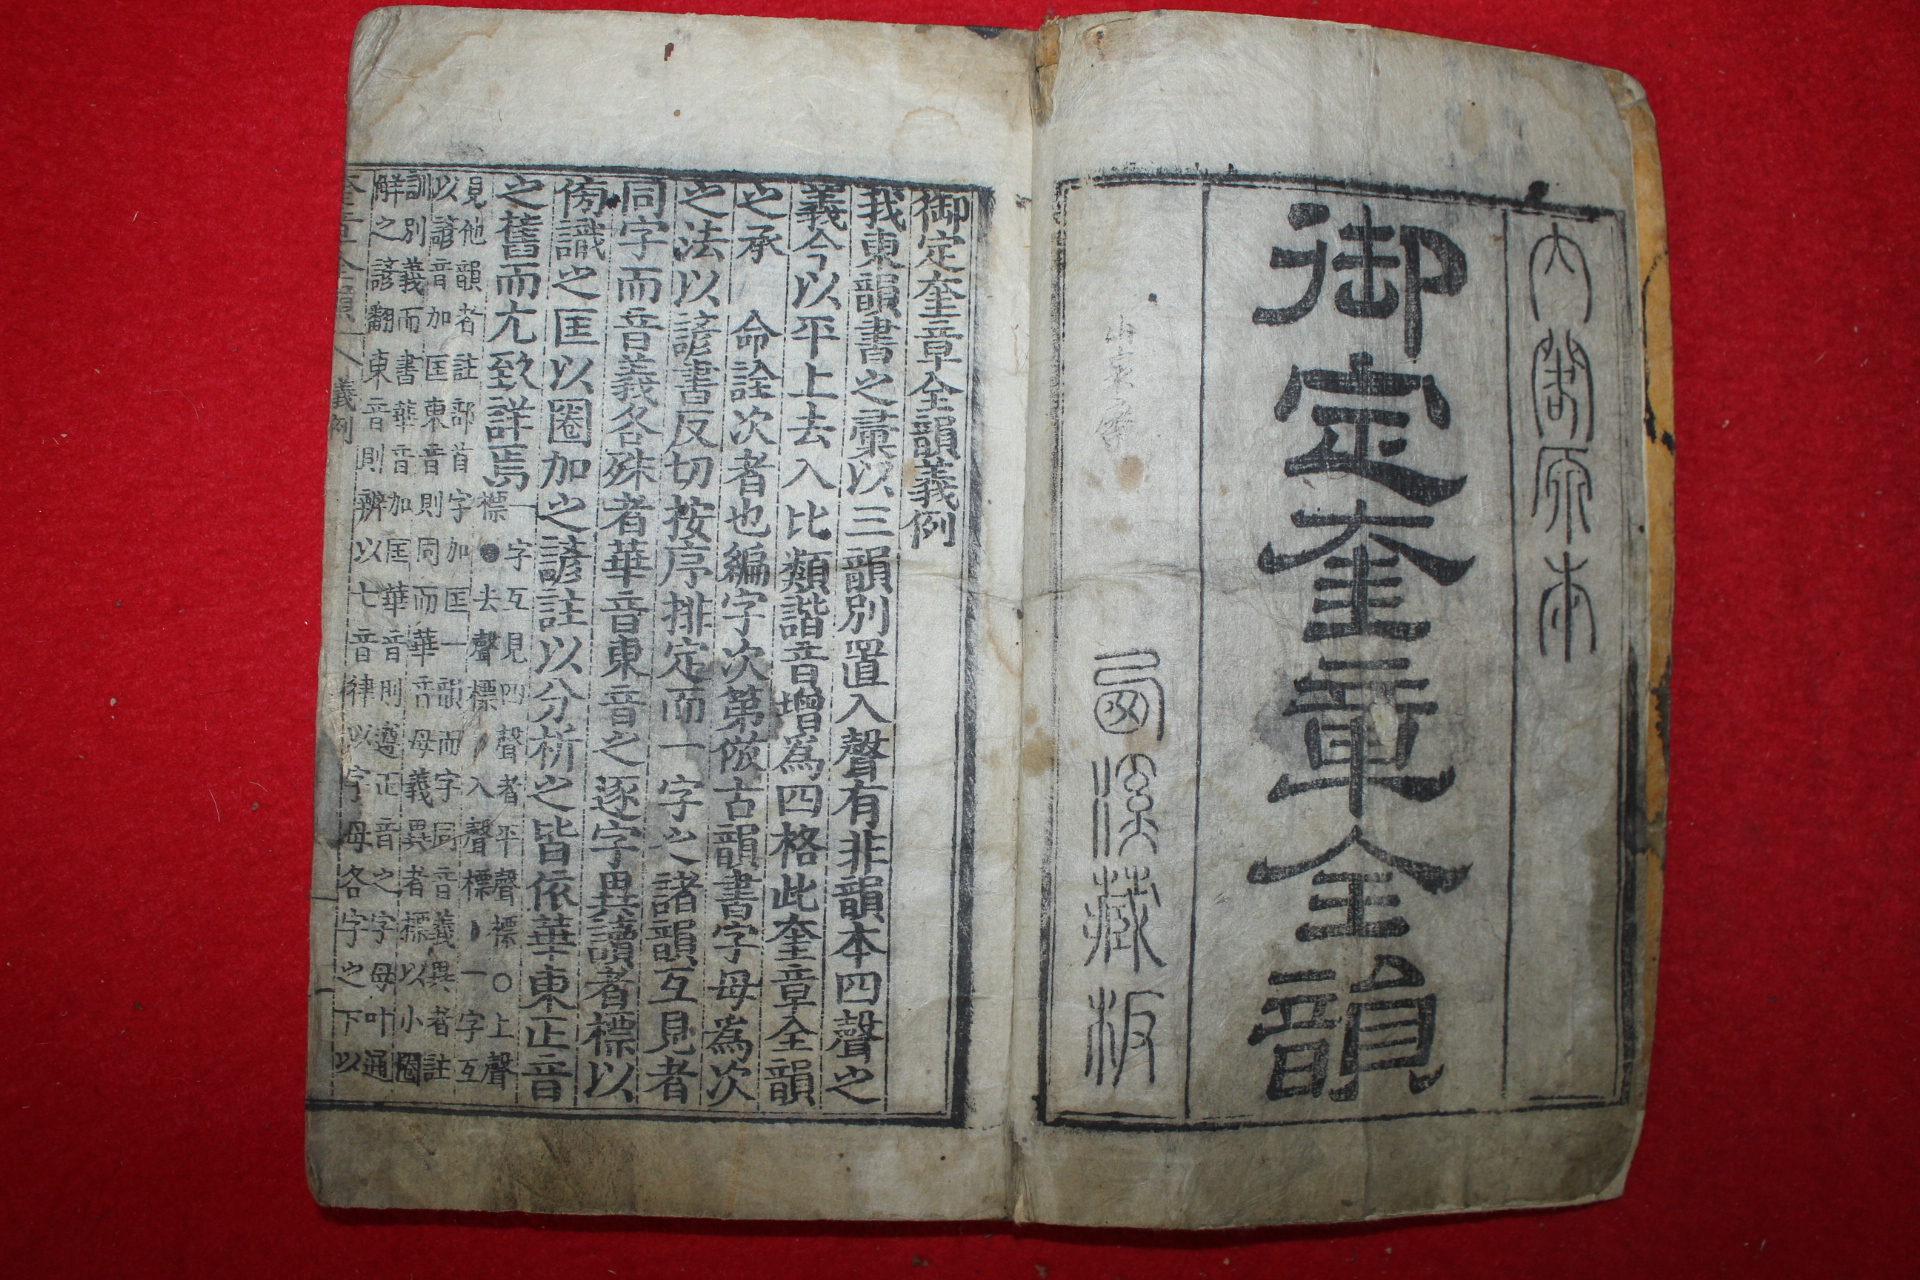 內閣原本
御定奎章全韻
藏板
御定奎章全韻義例
我東韻書之彙以三韻別置入聲有非韻本四聲之
義今以平上去入比類諧音增爲四格此奎章全韻
之承 命詮次者也編字次第倣古韻書字母爲次
之法以諺書反切按序排定而一字之諸韻互見者
同字而音義各殊者華音東音之逐字異讀者標以
傍識之匡以圈加之諺註以分析之皆依華東正音
之舊而尤致詳焉
標一字互見四聲者平聲標○上聲
標●去聲標 入聲標 一字互
見他韻者註部首字加匡一韻而字同音義異者註
以諺音加匡東音則同而華音母義異者標以小圈
訓別義而書華音加匡華音則遵正音之字母叶通
解之諺翻東音則辨以七音律以字母各字之下以
奎章全韻 義例